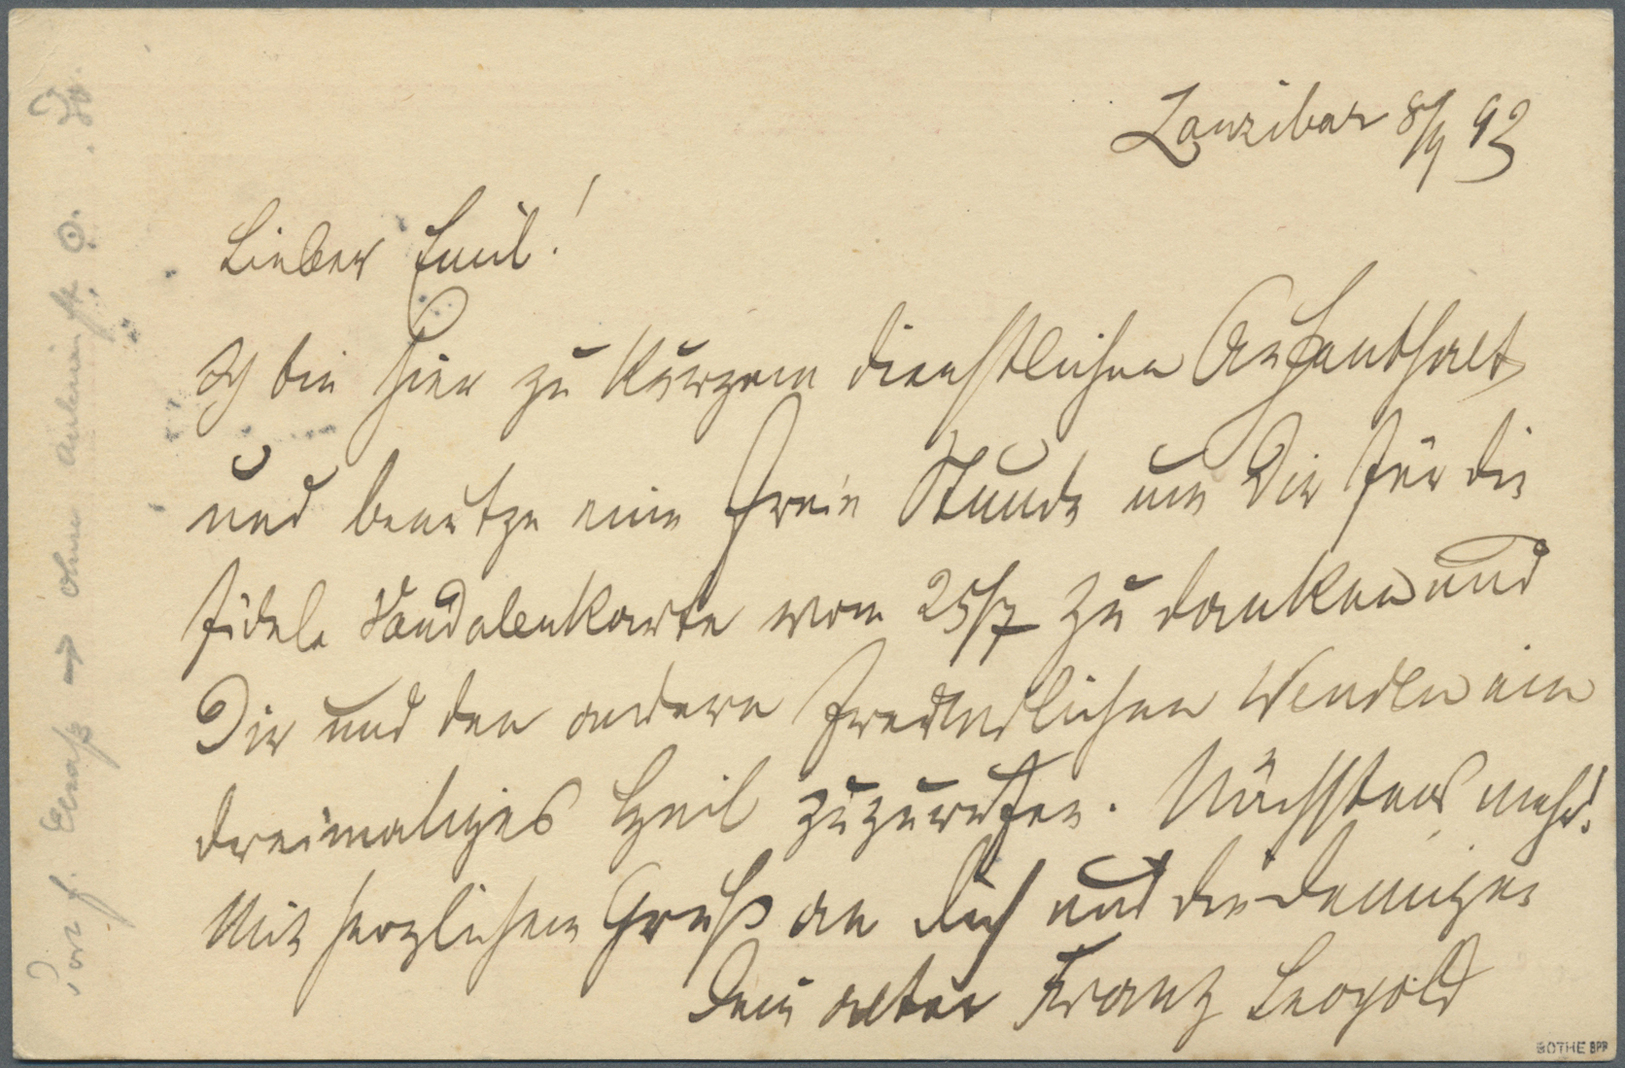 Zanzibar 8/9 93
Lieber Emil!
Ich bin hier zu kurzem dienstlichen Aufenthalt
und benutze eine freie Stunde um Dir für die
fidele Vandalenkarte vom 25/7 zu danken und
Dir und den andern freundlichen Wenden ein
dreimaliges Heil zuzurufen. Nächstens mehr!
Mit herzlichem Gruß an Dich und die Deinigen
Dein alter Franz Leopold
Port f. Elsaß → ohne
BOTHE BPP